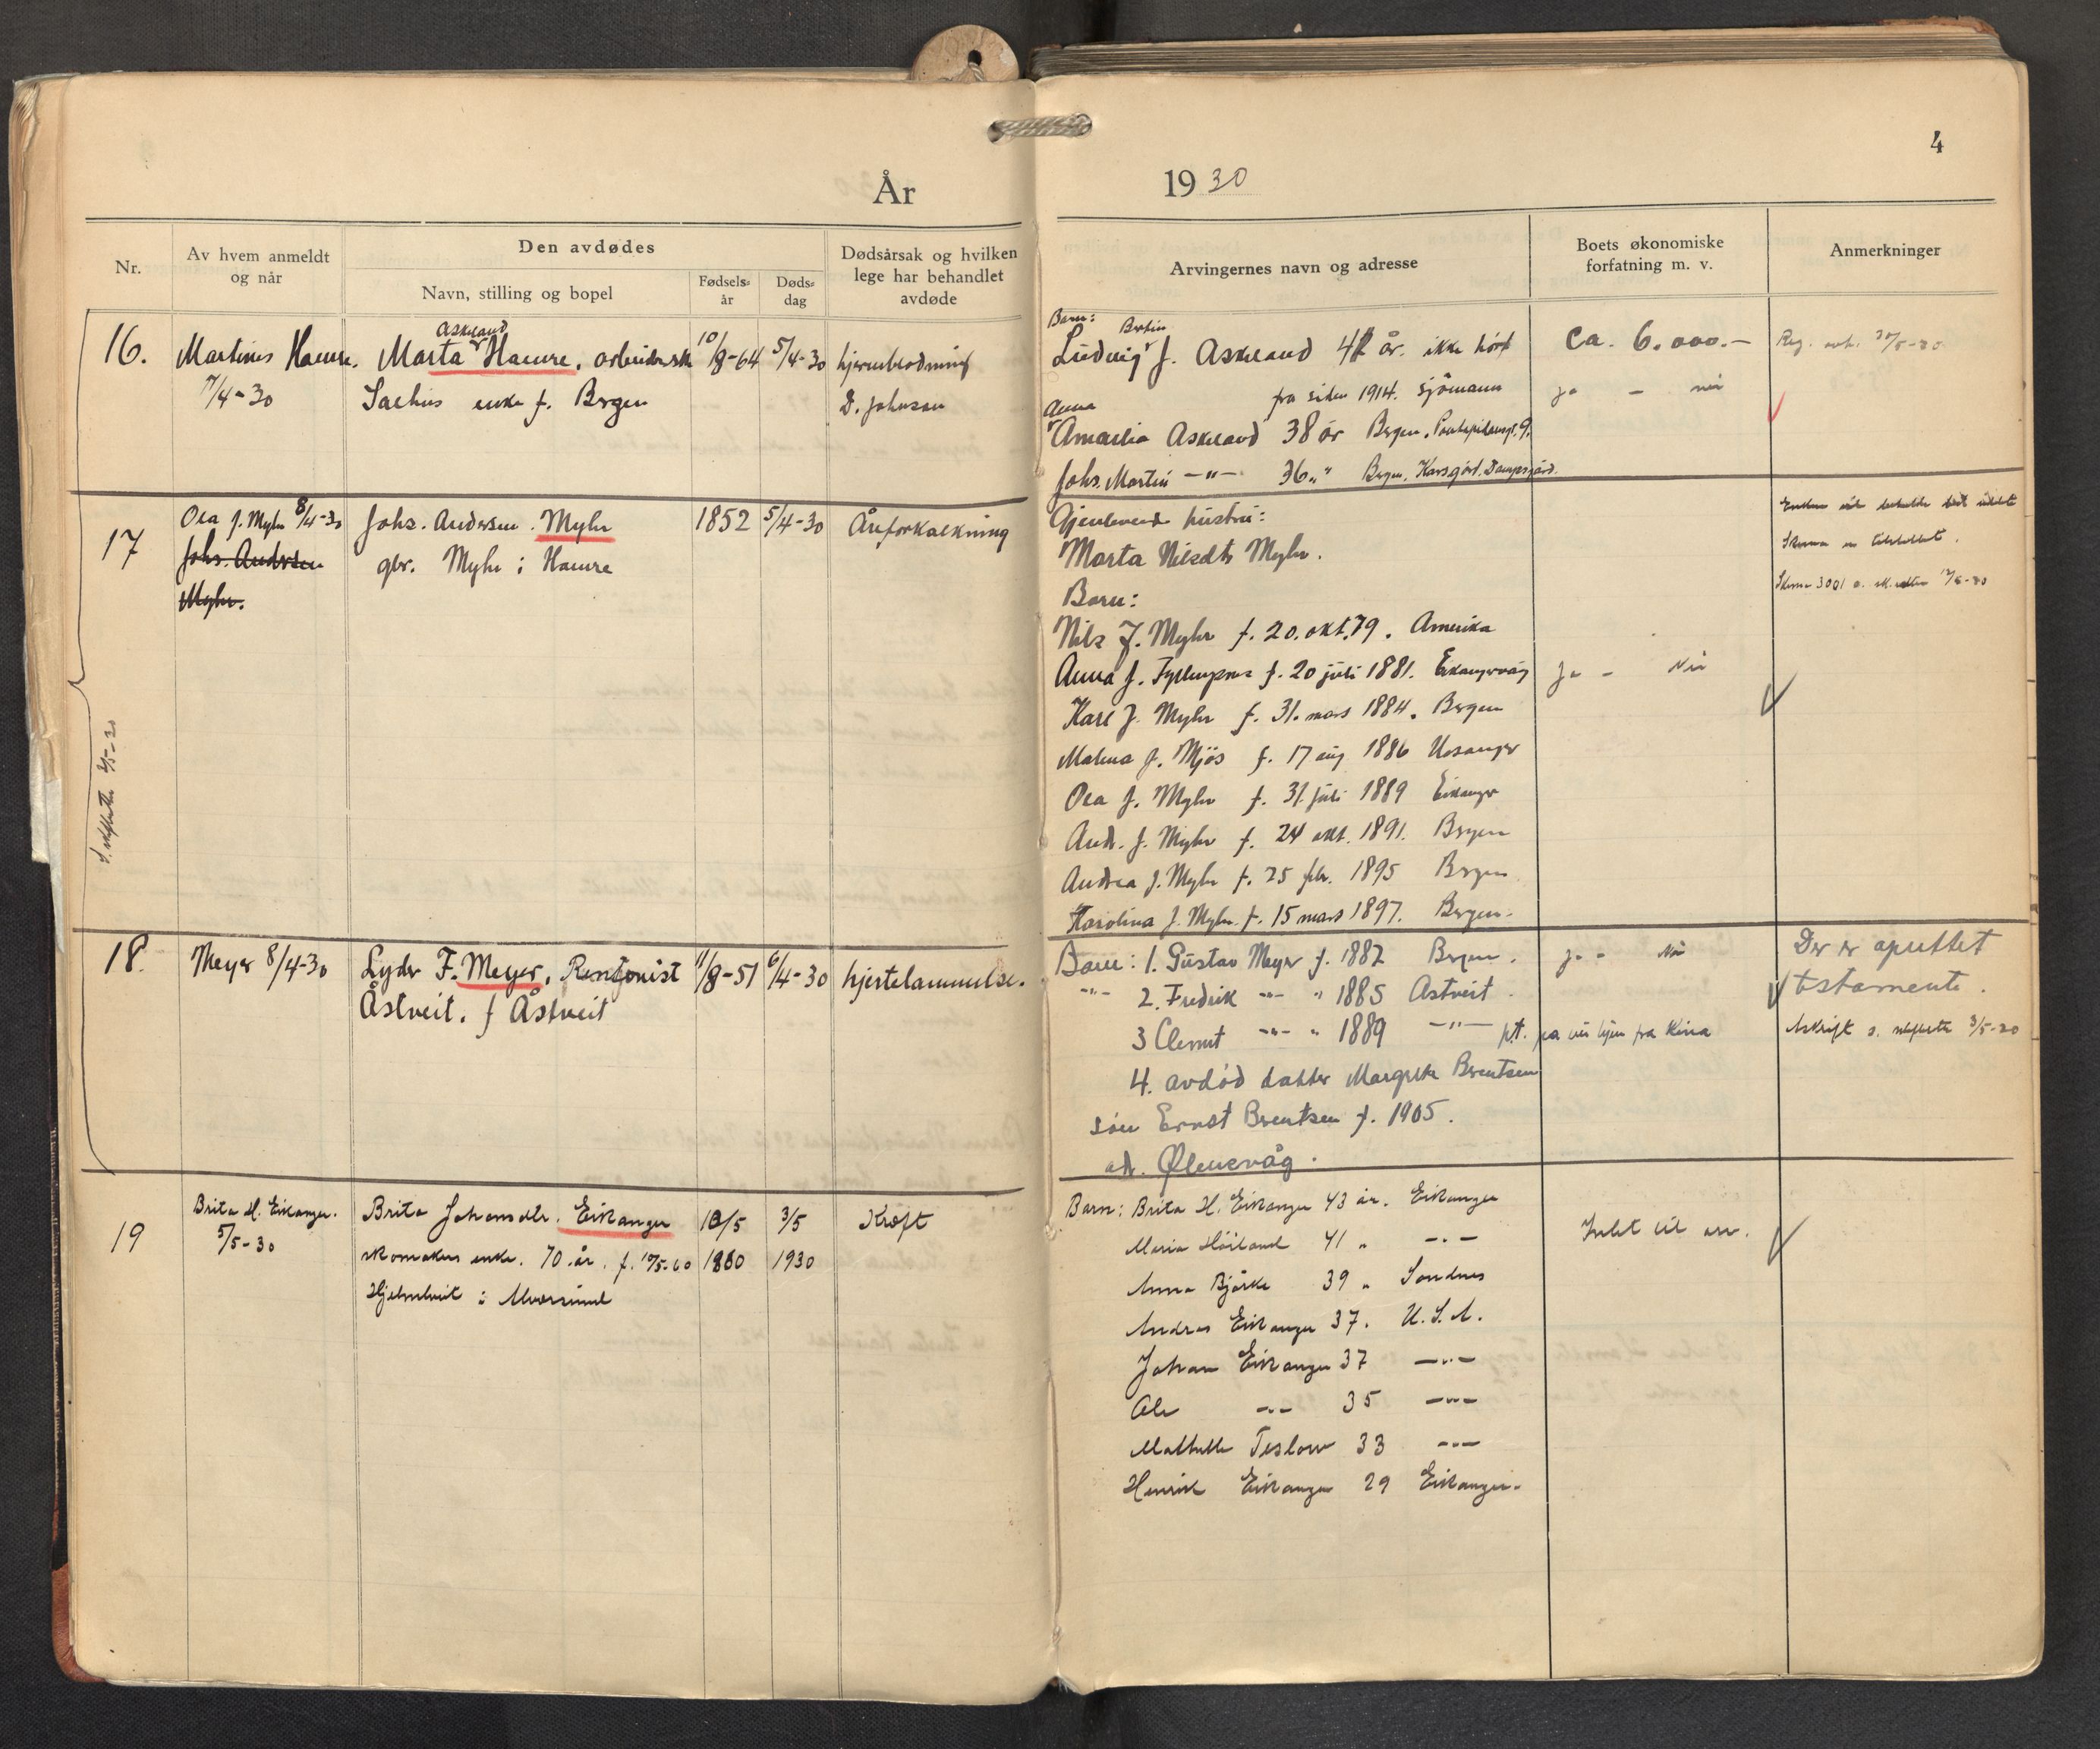 4
År 1930
Nr.
Av hvem anmeldt
og når
Den avdødes
Navn, stilling og bopel
Fødsels-
år
Døds-
dag
Dødsårsak og hvilken
lege har behandlet
avdøde
Arvingernes navn og adresse
Boets økonomiske
forfatning m. v.
Anmerkninger
16.
Martinus Hamre.
/4-30
Askeland
Marta Hamre, arbeidersk
enke f. Bergen
10/8-64
5/4-30
hjerneblødning
D. Johnsen
Barn:
Bertin
Ludvig J. Askeland år. ikke hørt
fra siden 1914. sjømann
Anna
Amalia Askeland 38 år Bergen,
Johs. Martin -"- 36 " Bergen,
Ca. 6.000.-
Ja - nei
17
Ola J. Myhr 8/4-30
Johs. Andersen
Myhr.
Johs. Andersen Myhr
gbr. Myhr i Hamre
1852
5/4-30
Åreforkalkning
Gjenlevende hustru:
Marta Nilsdtr Myhr.
Barn:
Nils J. Myhr f. 20. okt. 79. Amerika
Anna J. f. 20 juli 1881. Eikangervåg
Karl J. Myhr f. 31. mars 1884. Bergen
Malena J. Mjøs f. 17 aug 1886
Ola J. Myhr f. 31. juli 1889 Eikanger
And. J. Myhr f. 24 okt. 1891. Bergen
Andrea J. Myhr f. 25 febr. 1895 Bergen
Karolina J. Myhr f. 15 mars 1897. Bergen.
Ja - Nei
18.
Meyer 8/4-30
Lyder F. Meyer, Rentenist
Åstveit. f Åstveit
11/8-51
6/4-30
hjertelammelse.
Barn: 1. Gustav Meyer f. 1882 Bergen.
-"- 2. Fredrik -"- " 1885 Åstveit.
3 Clemet -"- " 1889 -"- p.t. på vei hjem fra Kina
4. avdød datter Margrethe Berentsen
søn Ernst Berentsen f. 1905.
ad.
Ja - Nei
Der er oprettet
testamente.
3/5-30
19
Brita H. Eikanger.
5/5-30
Brita Johansdtr. Eikanger
skomakers enke. 70 år. f. 10/5-60
i Alversund
10/5
1860
3/5
1930
Kræft
Barn: Brita H. Eikanger 43 år. Eikanger
Maria Høiland 41 " -"-
Anna Bjørke 39 " Sandnes
Andreas Eikanger 37. U.S.A.
Johan Eikanger 37 -"-
Ole -"- 35 -"-
33 -"-
Henrik Eikanger 29 Eikanger.
Intet til arv.